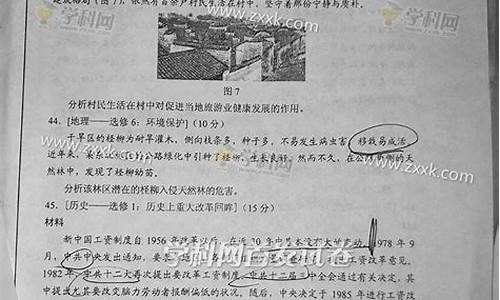 是成格局(图7),依然有百余户村民生活在村中,坚守着那份宁静与质朴。
图7
分析村民生活在村中对促进当地旅游业健康发展的作用。
44.[地理——选修6:环境保护](10分)
干旱区的柽柳为耐旱灌木,侧向枝条多,种子多,不易发生病虫害,移栽易成活。
近年来,某
公路绿化中引种了柽柳,生长良好。然而不久,在公路
侧的天
然林中,发现了柽柳幼苗。
分析该林区潜在的柽柳入侵天然林的危害。
45.[历史——选修1:历史上重大改革回眸](15分)
材料
新中国工资制度自1956年改革以后,在近30年中基本没有大的变动。1978年9
月,中共中央发出通知,要
工资改革意见。
1982年,中共十二大再次提出要改革工资制度。中共十二届三中全会通过有关决定,其
中提出尤其要改变脑力劳动者报酬偏低的状况。随后,中央决定于1985年进行工资改
学科网
www.zxxk.com
学科网
www.zxxk.com
www.zxxk.com
学科网
www.zxxk.com
学科网首发试卷